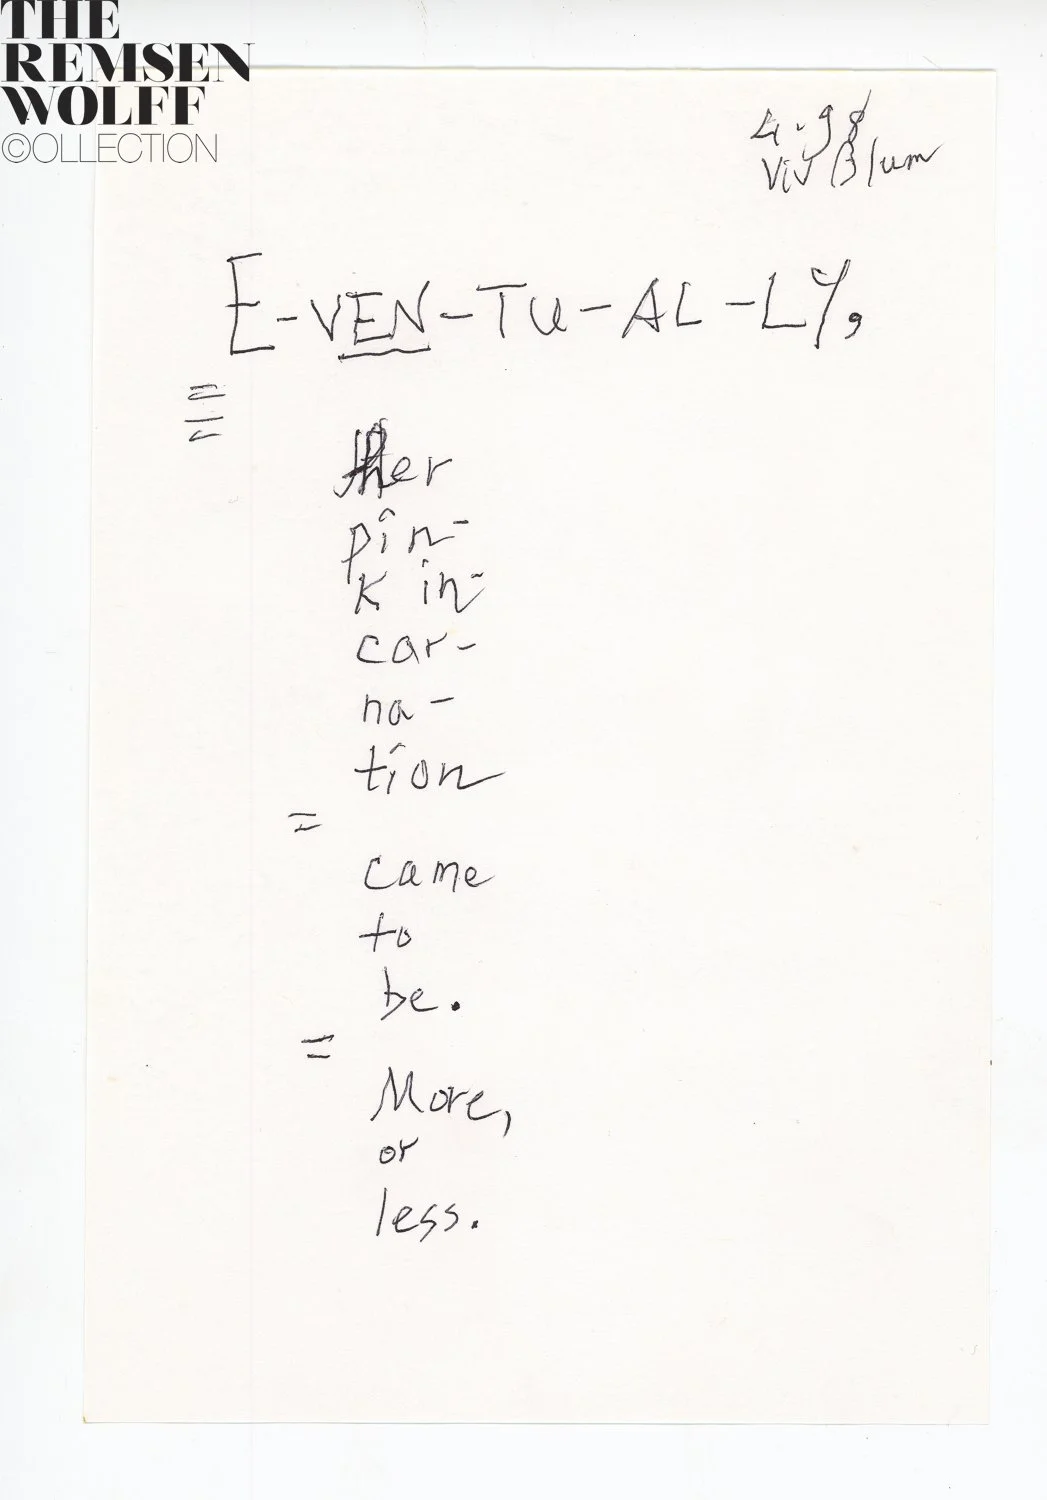 THE
REMSEN
WOLFF
©OLLECTION
4.98
Viv Blum
E-VEN-TU-AL-LY,
her
pin-
k in-
car-
na-
tion
came
to
be.
More,
or
less.